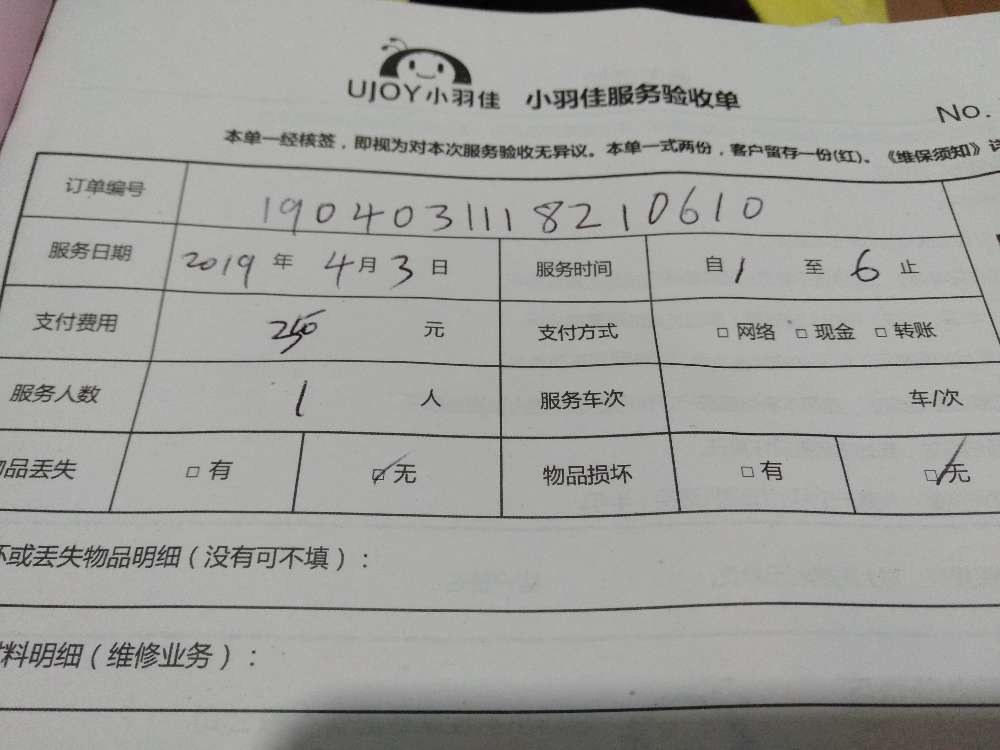 UJOY小羽佳 小羽佳服务验收单
No.
本单一经核签，即视为对本次服务验收无异议。本单一式两份，客户留存一份(红)。《维保须知》详
订单编号 1904031118210610
服务日期 2019 年 4 月 3 日 服务时间 自 1 至 6 止
支付费用 250 元 支付方式 □ 网络 □ 现金 □ 转账
服务人数 1 人 服务车次 车/次
品丢失 □ 有 ☑ 无 物品损坏 □ 有 ☑ 无
坏或丢失物品明细（没有可不填）：
料明细（维修业务）：